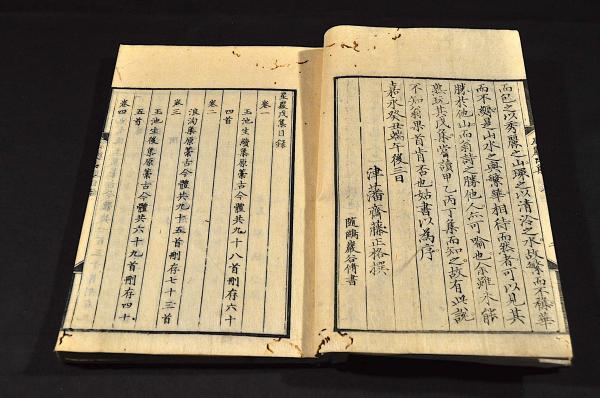 而包之以秀麗之山環之以清冷之水故繁而不穢華
而不
是山水之與繁華相待而聚者可以見其
勝於他山而翁詩之勝他人亦可喻也余雖未能
熟玩其戊集嘗讀甲乙丙丁集而知之故有此說
不知翁果首肯否也姑書以為序
嘉永癸丑端午後三日
津藩齋藤正格撰
隨鷗巖谷脩書
星巖戊集目錄
卷一
玉池生後集原藁古今體共九十八首刪存六十
四首
卷二
浪淘集原藁古今體共九十五首刪存七十三首
卷三
玉池生後集原藁古今體共六十九首刪存四十
五首
卷四